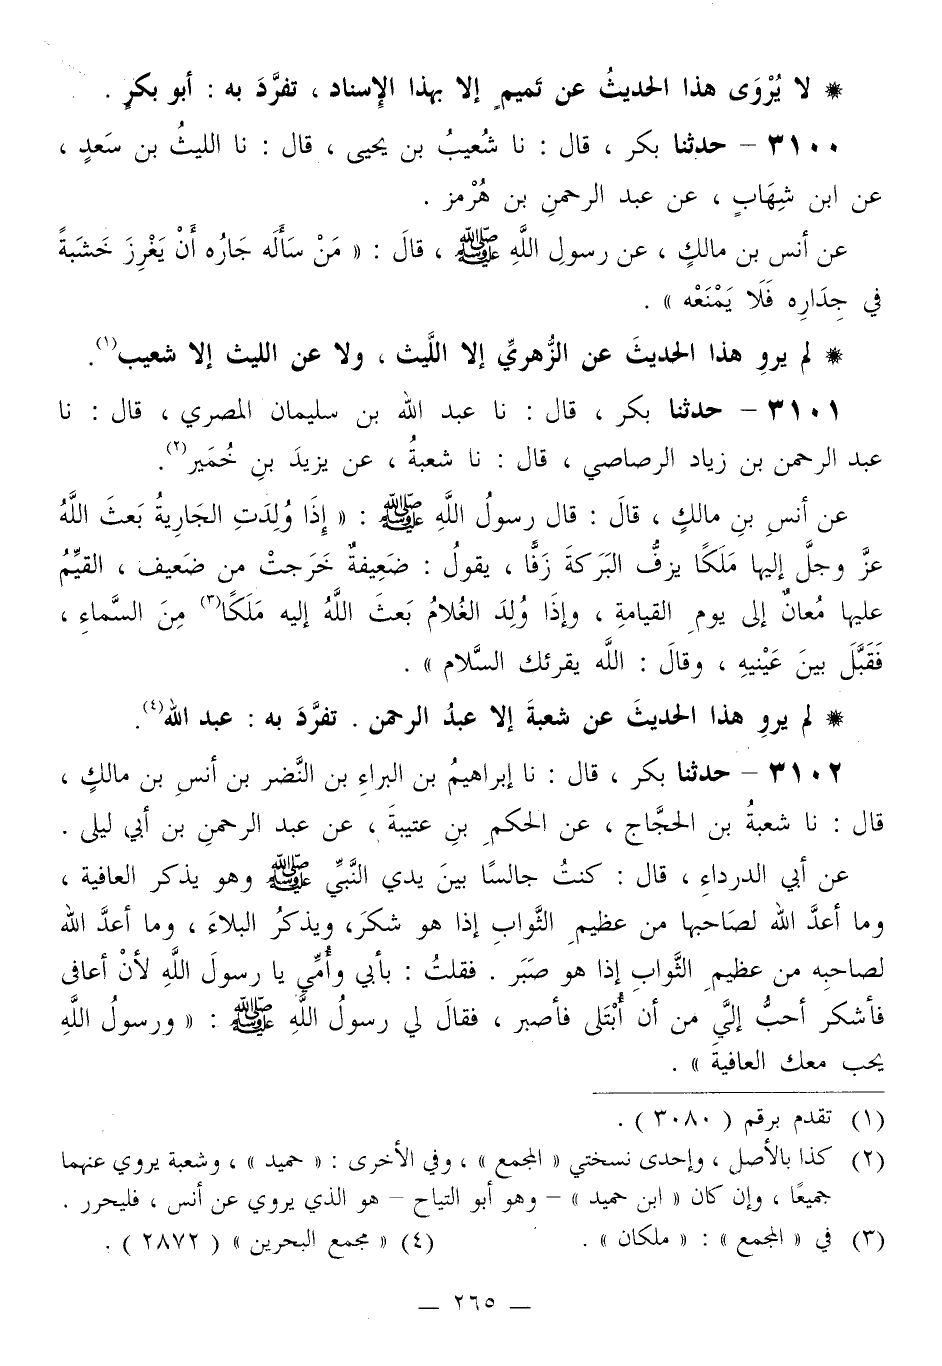 * لا يُرْوَى هذا الحديثُ عن تَميمٍ إلا بهذا الإسناد ، تفرَّدَ به : أبو بكرٍ .
٣١٠٠ – حدثنا بكر ، قال : نا شُعيبُ بن يحيى ، قال : نا الليثُ بن سَعدٍ ،
عن ابن شِهَابٍ ، عن عبد الرحمنِ بن هُرْمز .
عن أنس بن مالكٍ ، عن رسولِ اللَّهِ ﷺ ، قالَ : « مَنْ سَأَلَه جَارُه أَنْ يَغْرِزَ خَشَبَةً
في جِدَارِه فَلَا يَمْنَعْه » .
* لم يروِ هذا الحديثَ عن الزُّهريِّ إلا اللَّيث ، ولا عن الليث إلا شعيب(١).
٣١٠١ – حدثنا بكر ، قال : نا عبد الله بن سليمان المصري ، قال : نا
عبد الرحمن بن زياد الرصاصي ، قال : نا شعبةُ ، عن يزيدَ بنِ خُمَير(٢).
عن أنسِ بنِ مالكٍ ، قالَ : قال رسولُ اللَّهِ ﷺ : « إِذَا وُلِدَتِ الجَارِيةُ بَعثَ اللَّهُ
عزَّ وجلَّ إليها مَلَكًا يزفُّ البَركةَ زَفًّا ، يقولُ : ضَعِيفةٌ خَرجتْ من ضَعيف ، القيِّمُ
عليها مُعانٌ إلى يومِ القيامةِ ، وإذَا وُلِدَ الغُلامُ بَعثَ اللَّهُ إليه مَلَكًا(٣) مِنَ السَّماءِ ،
فَقَبَّلَ بينَ عَيْنيهِ ، وقالَ : اللَّه يقرئك السَّلام » .
* لم يروِ هذا الحديثَ عن شعبةَ إلا عبدُ الرحمن . تفرَّدَ به : عبد الله(٤).
٣١٠٢ – حدثنا بكر ، قال : نا إبراهيمُ بن البراءِ بن النَّضر بن أنسِ بن مالكٍ ،
قال : نا شعبةُ بن الحجَّاج ، عن الحكمِ بنِ عتيبةَ ، عن عبد الرحمنِ بن أبي ليلى .
عن أبي الدرداءِ ، قال : كنتُ جالسًا بينَ يدي النَّبيِّ ﷺ وهو يذكر العافية ،
وما أعدَّ الله لصَاحبها من عظيمِ الثَّوابِ إذا هو شكرَ، ويذكرُ البلاءَ ، وما أعدَّ الله
لصاحبِه من عظيمِ الثَّوابِ إذا هو صَبَر . فقلتُ : بأبي وأُمِّي يا رسولَ اللَّهِ لأنْ أعافى
فأشكر أحبُّ إليَّ من أن أُبْتَلى فأصبر ، فقال لي رسولُ اللَّهِ ﷺ : « ورسولُ اللَّهِ
يحب معك العافيةَ » .
(١) تقدم برقم ( ٣٠٨٠ ) .
(٢) كذا بالأصل ، وإحدى نسختي « المجمع » ، وفي الأخرى : « حميد » ، وشعبة يروي عنهما
جميعًا ، وإن كان « ابن حميد » – وهو أبو التياح – هو الذي يروي عن أنس ، فليحرر .
(٣) في « المجمع » : « ملكان » . (٤) « مجمع البحرين » ( ٢٨٧٢ ) .
— ٢٦٥ —